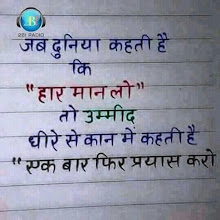 RBI RADIO
जब दुनिया कहती है
कि
"हार मान लो"
तो उम्मीद
धीरे से कान में कहती है
"एक बार फिर प्रयास करो